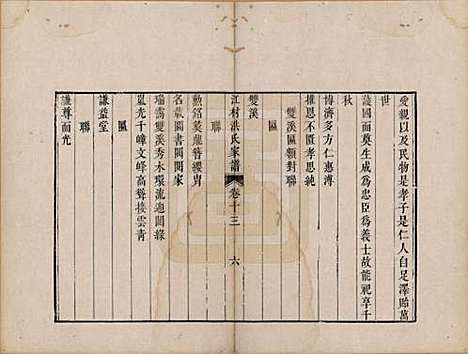 愛親以及民物是孝子是仁人自足澤貽萬
世
護國而奠生成為忠臣為義士故能祀享千
秋
博濟多方仁惠溥
推恩不匱孝思純
雙溪區額對聯
區
雙溪
江村洪氏家譜 卷十三 六
聯
勲銘葵鼎簪纓冑
名載國書閥閱家
瑞靄雙溪秀水環流迎閭綠
嵐光千嶂文峰高聳接雲青
區
謙益堂
聯
謙尊而光